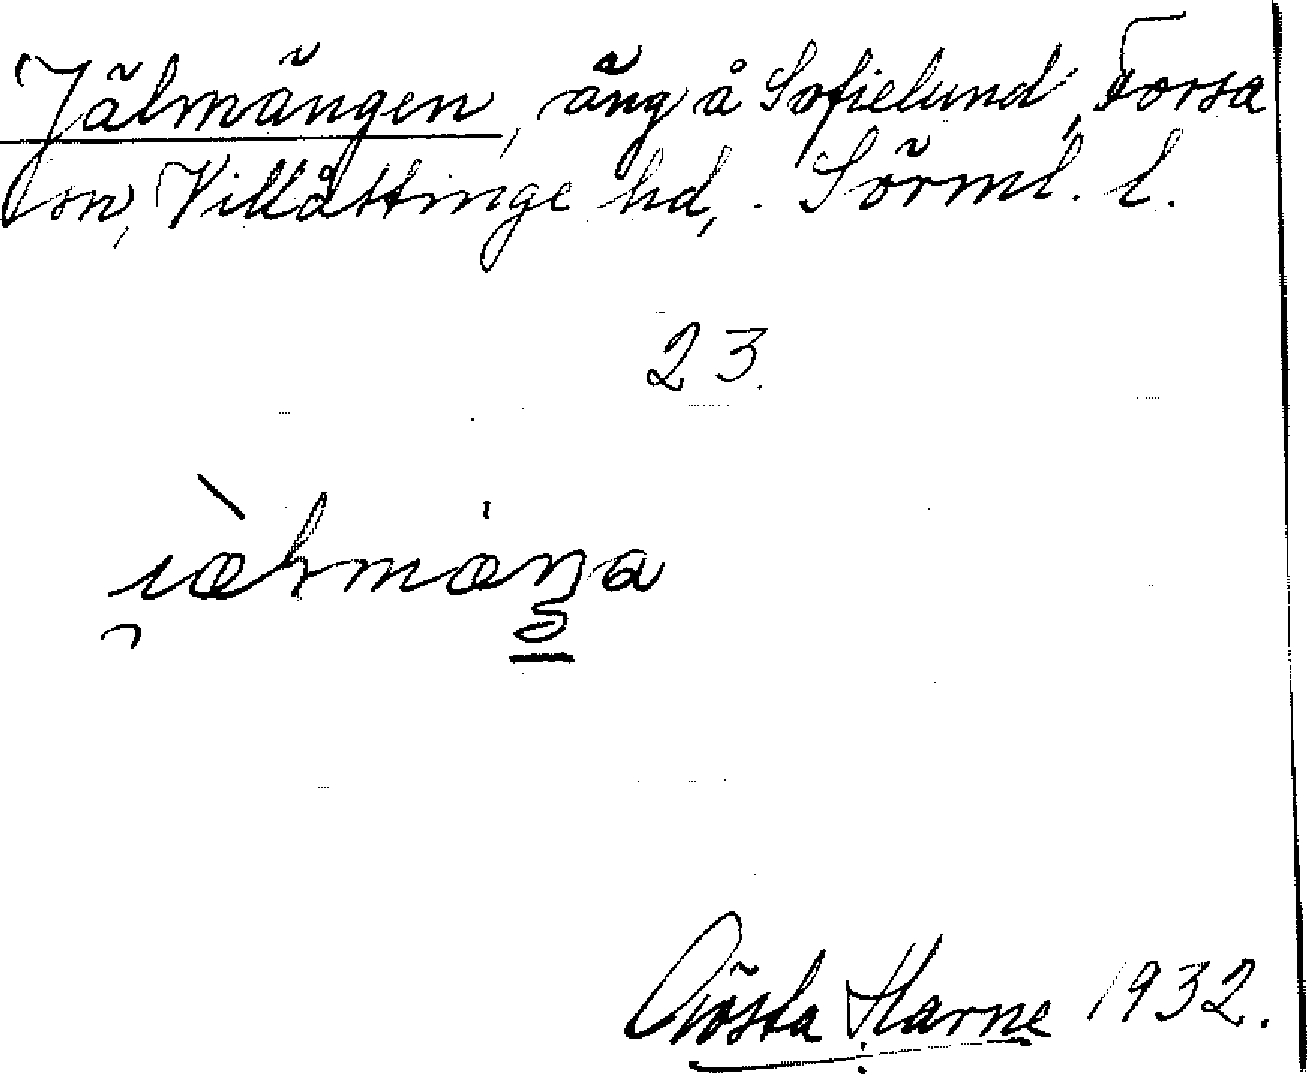 Jälmängen, äng å Sofielund, Forsa
sn, Villåttinge hd, Sörml. l.
23.
Gösta Harne 1932.